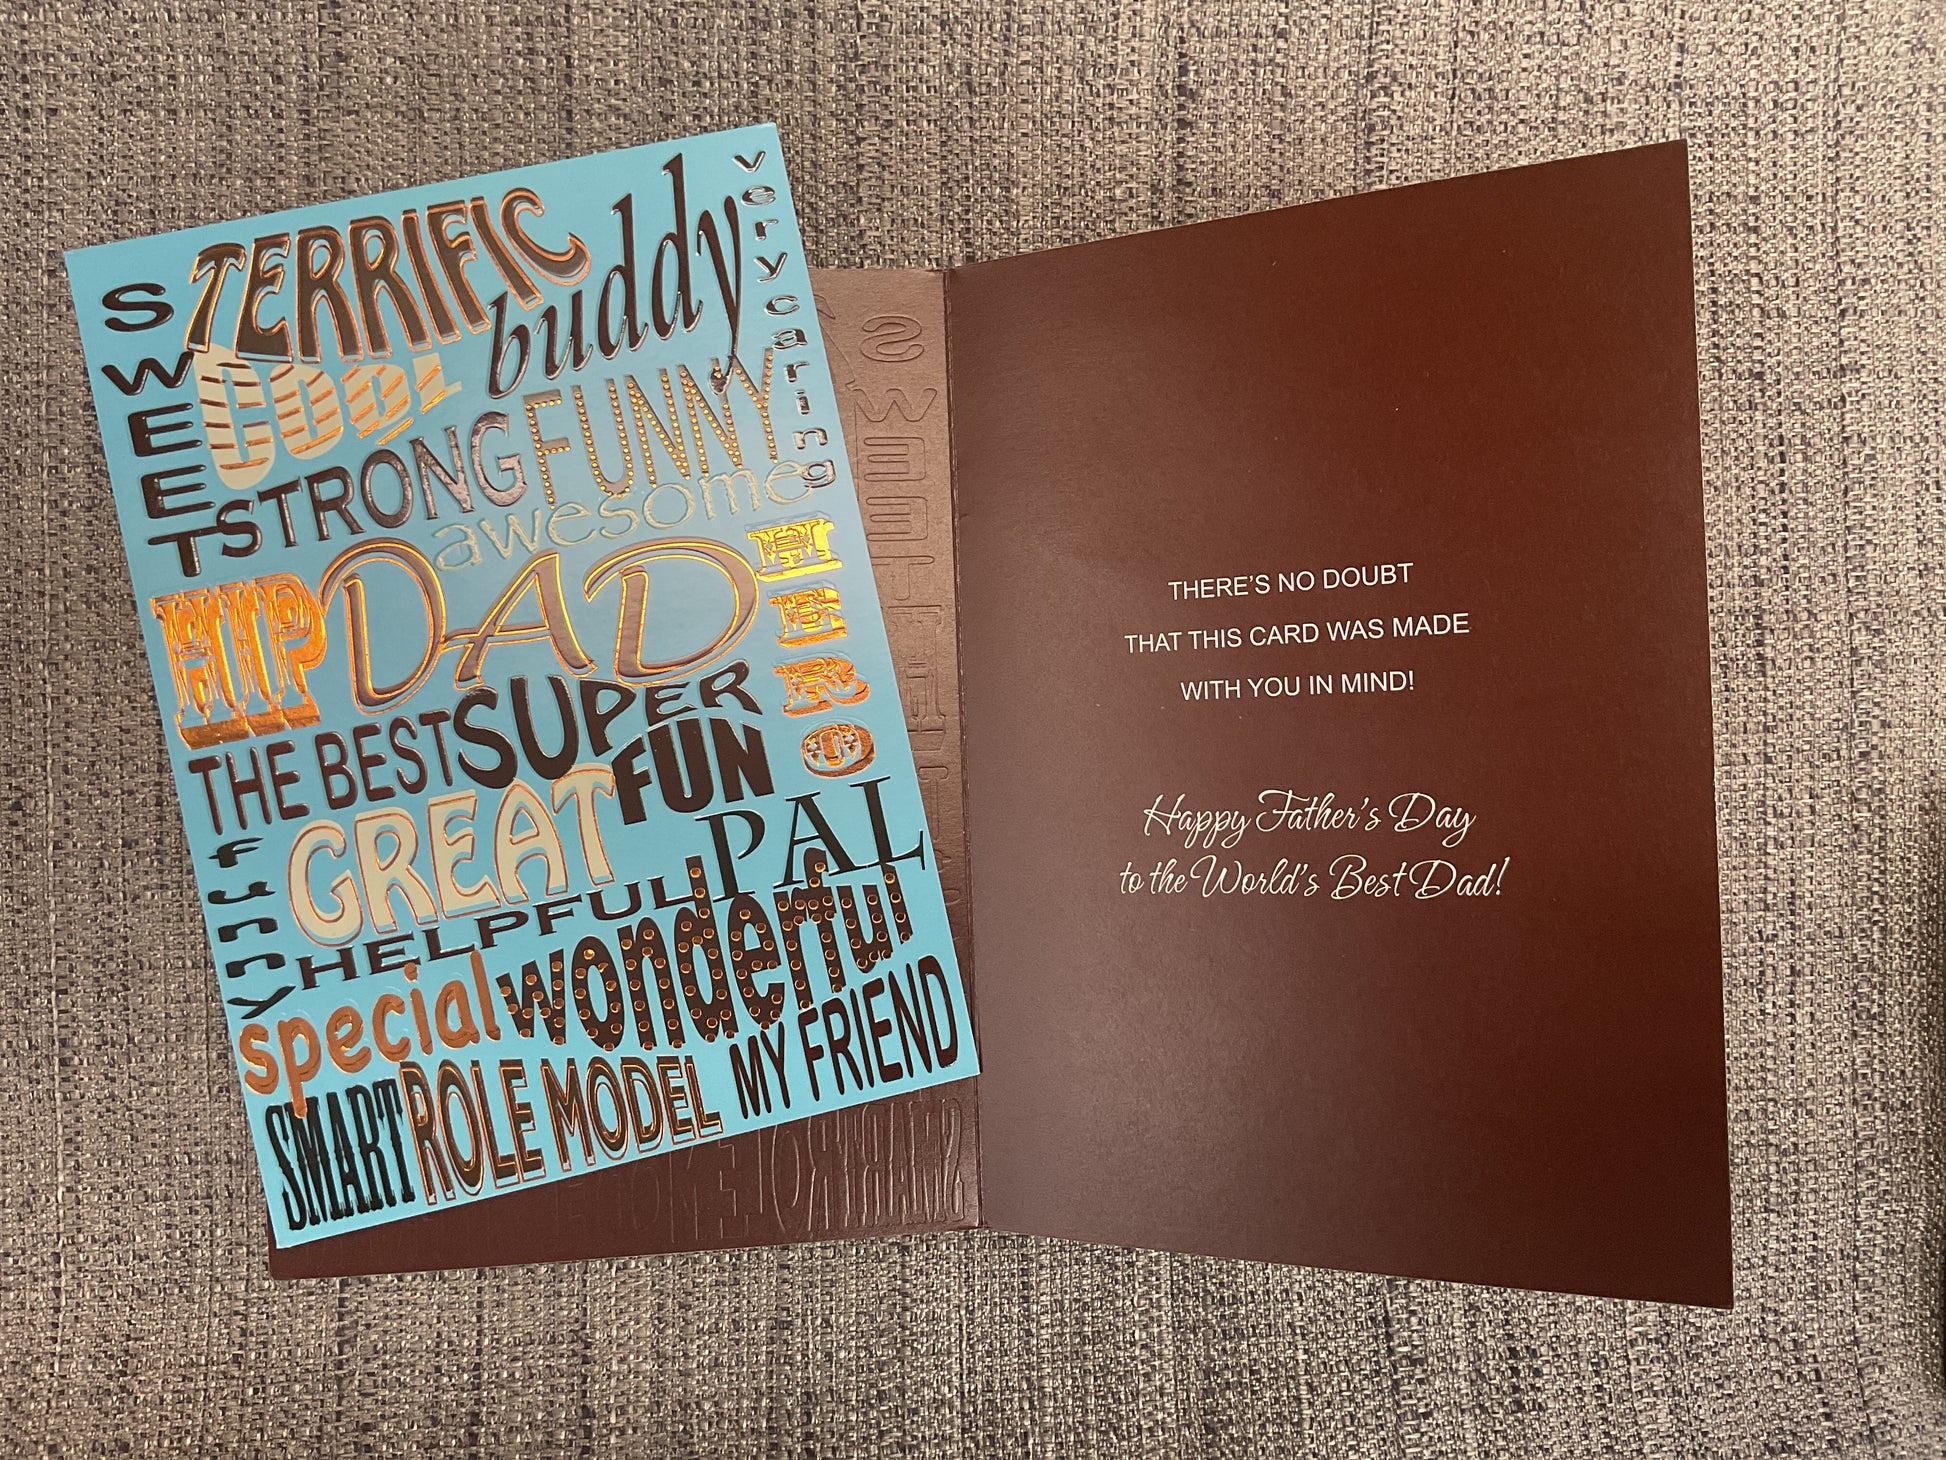 SWEET
TERRIFIC
buddy
very caring
COOL
STRONG
FUNNY
awesome
HIP
DAD
HERO
THE BEST
SUPER
FUN
funny
GREAT
PAL
HELPFUL
special
wonderful
SMART
ROLE MODEL
MY FRIEND
THERE'S NO DOUBT
THAT THIS CARD WAS MADE
WITH YOU IN MIND!
Happy Father's Day
to the World's Best Dad!